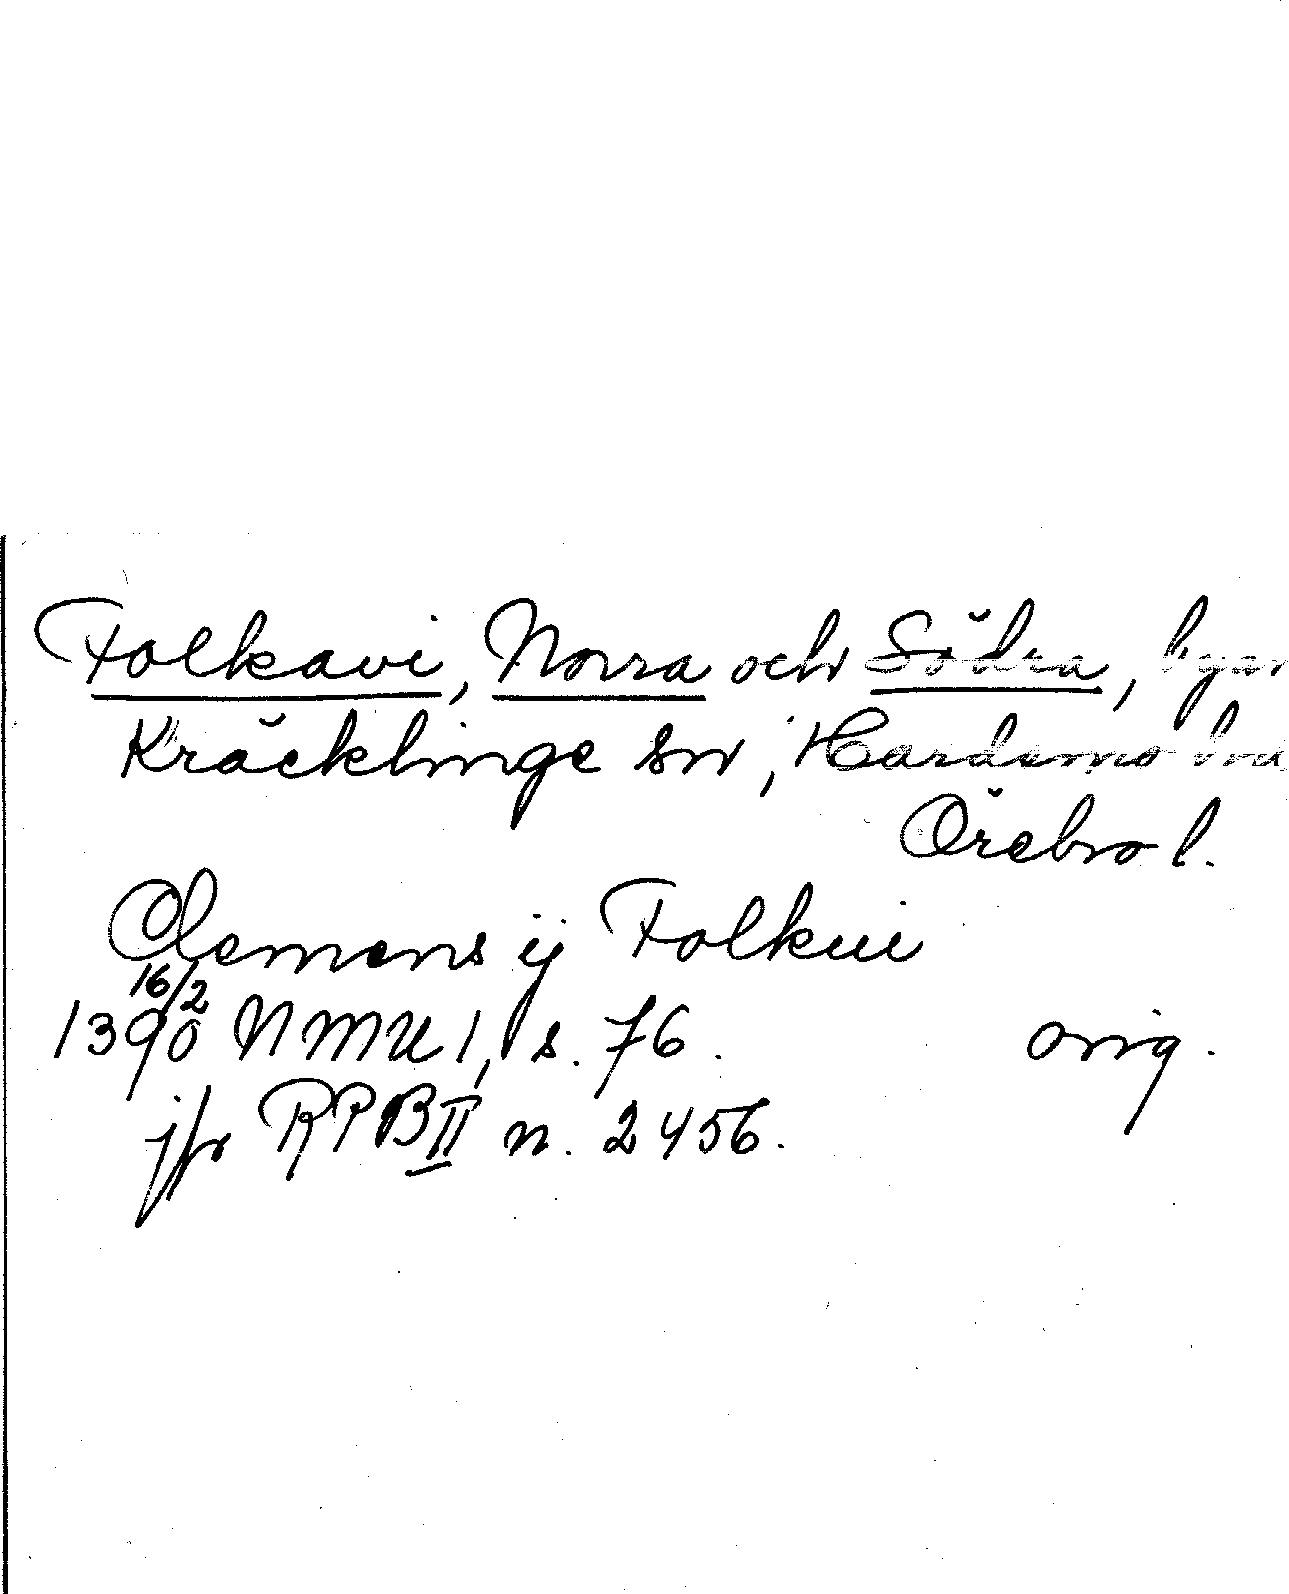 Folkavi, Norra och Södra, byar
Kräcklinge sn, Hardemo
Örebro l.
Clemens ij Folkui
16/2
1390 NMU 1, s. 76. orig.
jfr RPB II n. 2456.